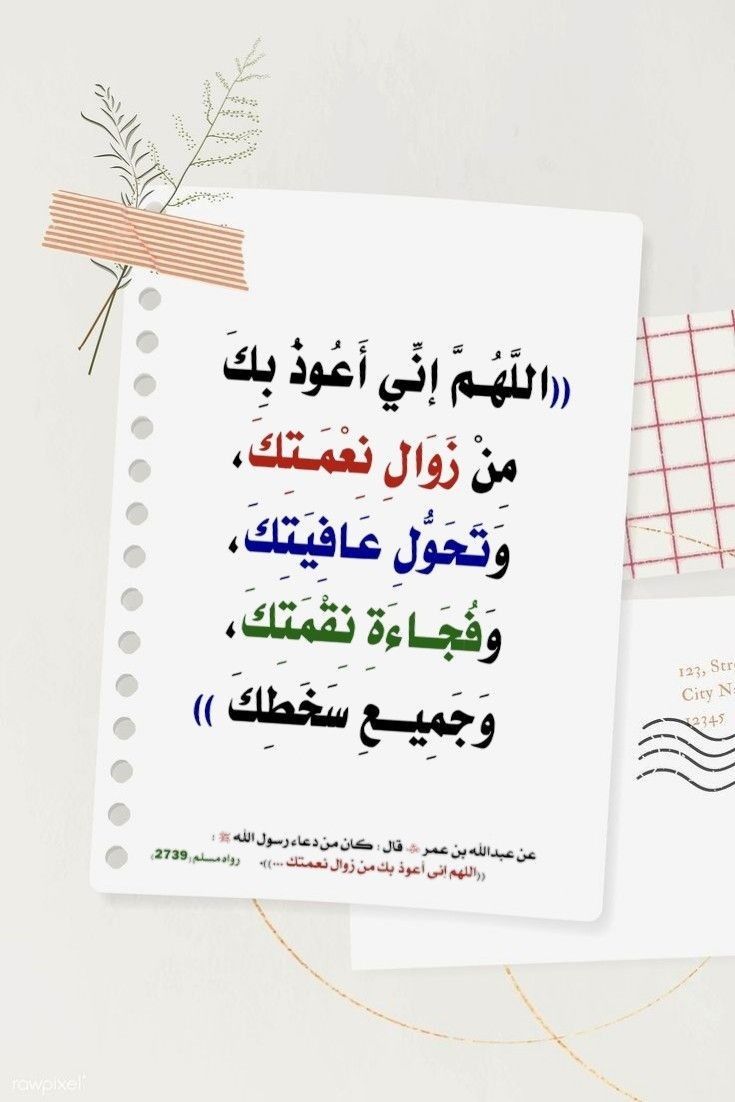 ((اللَّهُمَّ إنِّي أَعُوذُ بِكَ
مِنْ زَوَالِ نِعْمَتِكَ،
وَتَحَوُّلِ عَافِيَتِكَ،
وَفُجَاءَةِ نِقْمَتِكَ،
وَجَمِيعِ سَخَطِكَ ))
عن عبدالله بن عمر ﵁ قال : كان من دعاء رسول الله ﷺ :
((اللهم إنى أعوذ بك من زوال نعمتك ...)). رواه مسلم (2739)
123, Str
City Na
12345
rawpixel